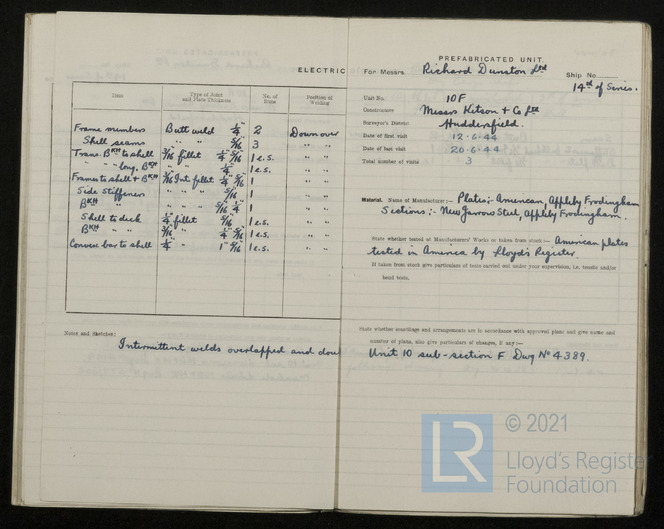 ELECTRIC
Item Type of Joint and Plate Thickness No. of Runs Position of Welding
Frame members Butt weld 1/4" 2 Downover
Shell seams " " 5/16 3 " "
Trans. BKH to shell 3/16 fillet 1/4 5/16 1 e.s. " "
" " long. BKH " " 1/4 1 " "
Frames to shell & BKH 3/16 Int. fillet 1/4 5/16 1 " "
Side stiffeners " " " 5/16 1 " "
BKH " " " " 5/16 1/4 1 " "
Shell to deck 1/4 fillet 5/16 1 e.s. " "
BKH " " 3/16 " 1/4 5/16 1 e.s. " "
Convex bar to shell 1/4 " 1" 5/16 1 e.s. " "
Notes and Sketches:
Intermittent welds overlapped and
PREFABRICATED UNIT.
For Messrs. Richard Dunston Ltd Ship No.
14th of Series.
Unit No. 10F
Constructors Messrs Kitson & Co Ltd
Surveyor's District Huddersfield.
Date of first visit 12-6-44
Date of last visit 20-6-44
Total number of visits 3
Material. Name of Manufacturer:— Plates:- American, Appleby Frodingham
Sections:- New Jarrow Steel, Appleby Frodingham.
State whether tested at Manufacturers' Works or taken from stock:— American plates
tested in America by Lloyd's Register.
If taken from stock give particulars of tests carried out under your supervision, i.e. tensile and/or
bend tests.
State whether scantlings and arrangements are in accordance with approved plans and give name and
number of plans, also give particulars of changes, if any:—
Unit 10 sub-section F Dwg No 4389.
© 2021
LR
Lloyd's Register
Foundation